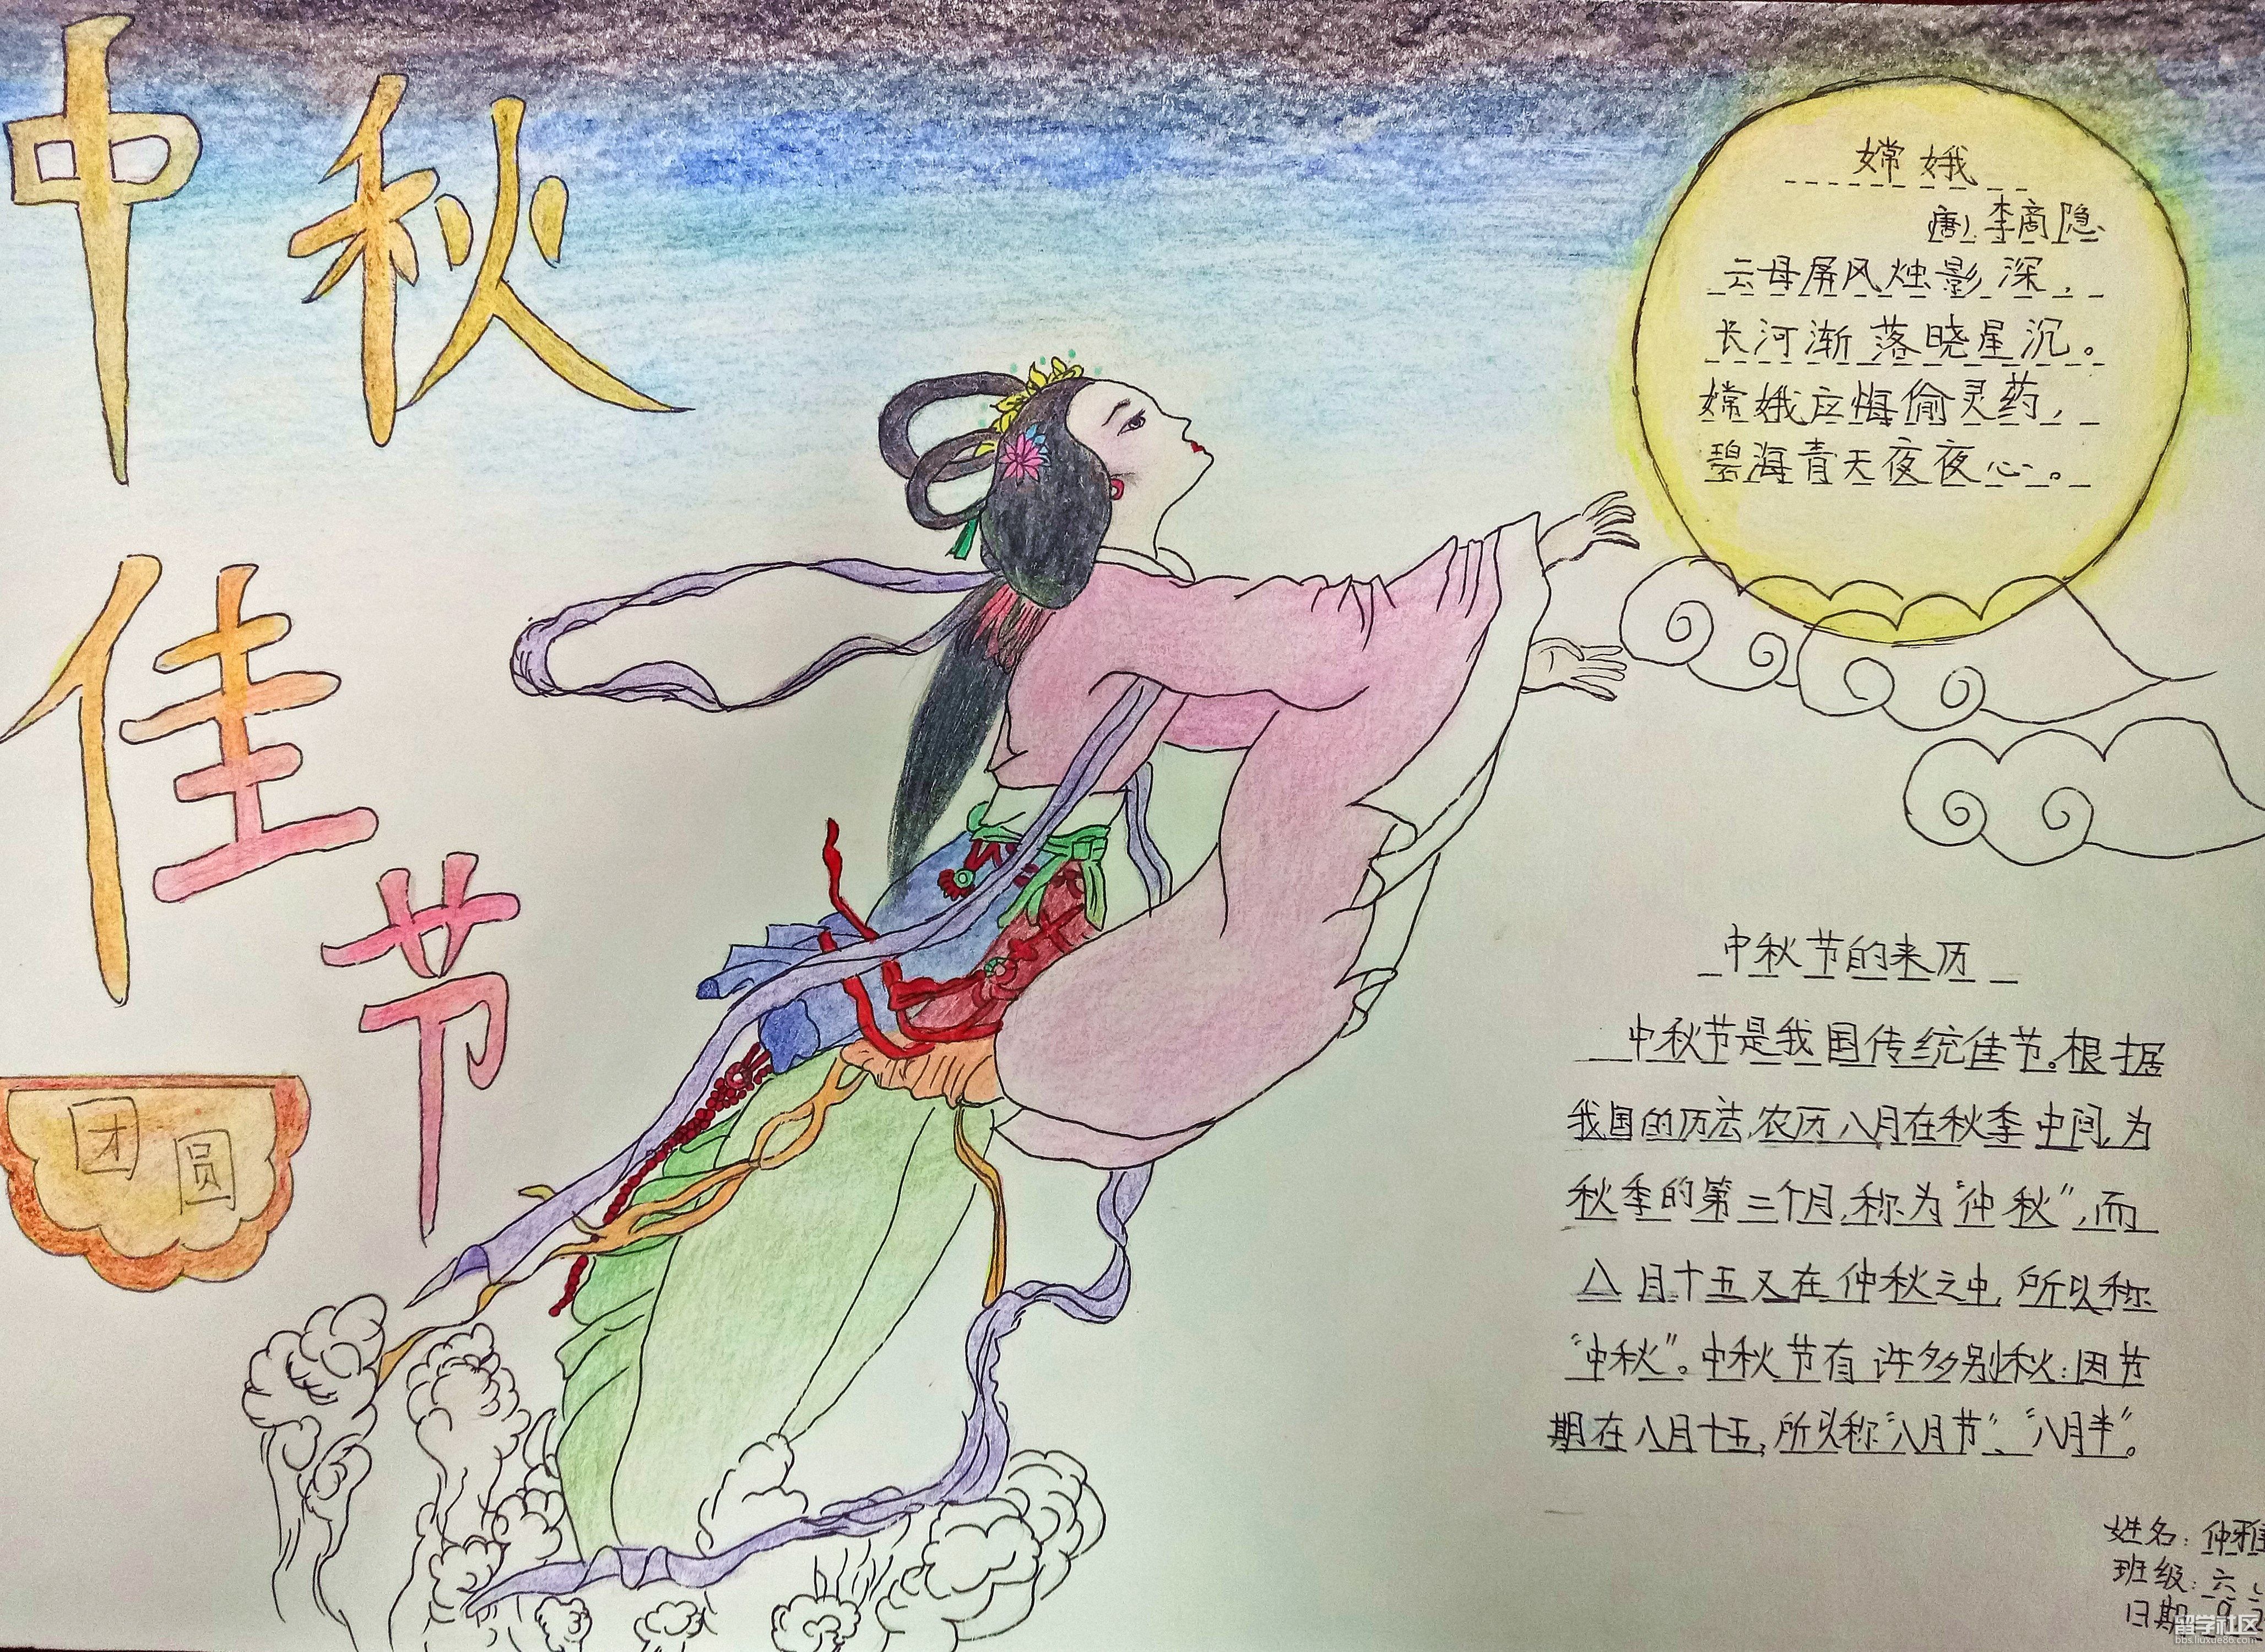 中秋
佳节
团圆
嫦娥
(唐)李商隐
云母屏风烛影深，
长河渐落晓星沉。
嫦娥应悔偷灵药，
碧海青天夜夜心。
中秋节的来历
中秋节是我国传统佳节。根据
我国的历法,农历八月在秋季中间,为
秋季的第三个月,称为“仲秋”,而
八月十五又在仲秋之中,所以称
“中秋”。中秋节有许多别秋:因节
期在八月十五,所以称“八月节”、“八月半”。
姓名:仲雅
班级:六
日期
留学社区
bbs.liuxue86.com